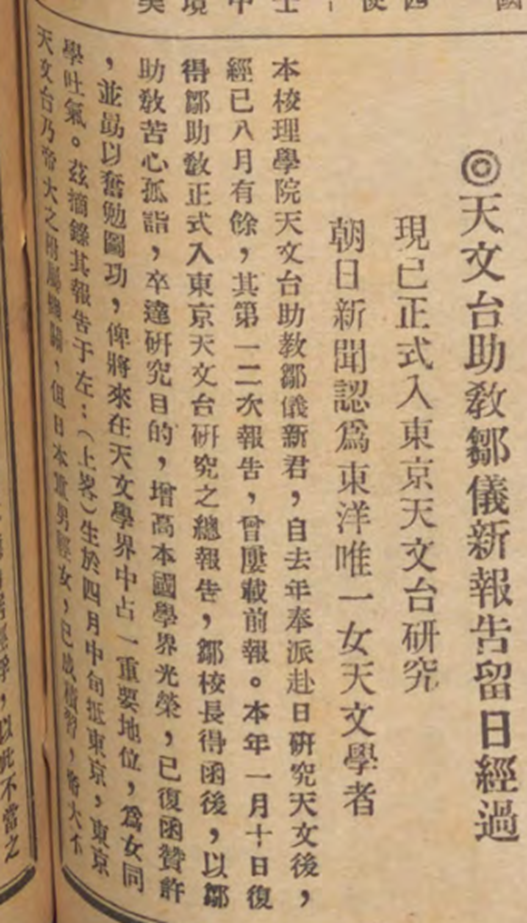 ◎天文台助教鄒儀新報告留日經過
現已正式入東京天文台研究
朝日新聞認爲東洋唯一女天文學者
本校理學院天文台助教鄒儀新君，自去年奉派赴日研究天文後，
經已八月有餘，其第一二次報告，曾屢載前報。本年一月十日復
得鄒助教正式入東京天文台研究之總報告，鄒校長得函後，以鄒
助教苦心孤詣，卒達研究目的，增高本國學界光榮，已復函贊許
，並勗以奮勉圖功，俾將來在天文學界中占一重要地位，爲女同
學吐氣。茲摘錄其報告于左：（上畧）生於四月中旬抵東京，東京
天文台乃帝大之附屬機關，但日本重男輕女，已成積習，帝大不
，以此不當之